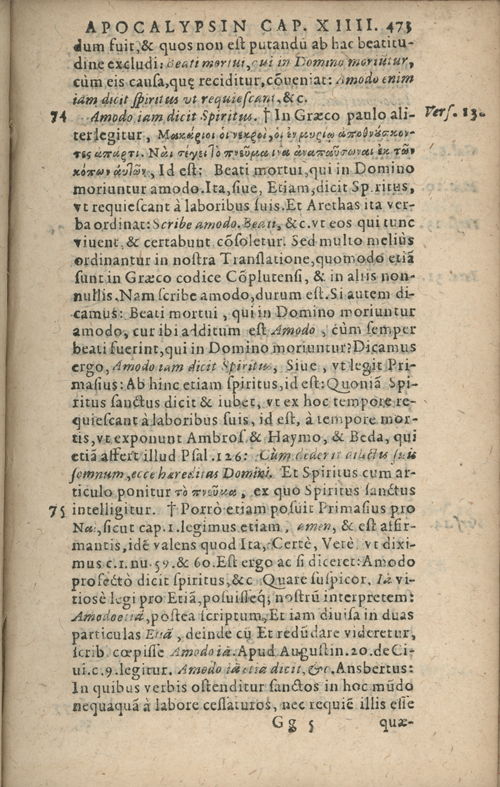 APOCALYPSIN CAP. XIIII. 473
dum fuit, & quos non eſt putandū ab hac beatitu-
dine excludi: Beati mortui, qui in Domino moriūtur,
cùm eis cauſa, quę reciditur, cōueniat: Amodo enim
iam dicit ſpiritus vt requieſcant, &c.
74 Amodo iam dicit Spiritus. † In Græco paulo ali- Verſ. 13.
ter legitur, Μακάριοι οἱ νεκροί, οἱ ἐν κυρίῳ ἀποθνήσκον-
τες ἀπάρτι. Ναὶ λέγει τὸ πνεῦμα ἵνα ἀναπαύσωνται ἐκ τῶν
κόπων αὐτῶν, Id eſt: Beati mortui, qui in Domino
moriuntur amodo. Ita, ſiue, Etiam, dicit Spiritus,
vt requieſcant à laboribus ſuis. Et Arethas ita ver-
ba ordinat: Scribe amodo. Beati, &c. vt eos qui tunc
viuent & certabunt cōſoletur. Sed multo melius
ordinantur in noſtra Tranſlatione, quomodo etiā
ſunt in Græco codice Cōplutenſi, & in aliis non-
nullis. Nam ſcribe amodo, durum eſt. Si autem di-
camus: Beati mortui, qui in Domino moriuntur
amodo, cur ibi additum eſt Amodo, cùm ſemper
beati fuerint, qui in Domino moriuntur? Dicamus
ergo, Amodo iam dicit Spiritus, Siue, vt legit Pri-
maſius: Ab hinc etiam ſpiritus, id eſt: Quoniā Spi-
ritus ſanctus dicit & iubet, vt ex hoc tempore re-
quieſcant à laboribus ſuis, id eſt, à tempore mor-
tis, vt exponunt Ambroſ. & Haymo, & Beda, qui
etiā affert illud Pſal. 126: Cùm dederit dilectis ſuis
ſomnum, ecce hæreditas Domini. Et Spiritus cum ar-
ticulo ponitur τὸ πνεῦμα, ex quo Spiritus ſanctus
75 intelligitur. † Porrò etiam poſuit Primaſius pro
Ναὶ, ſicut cap. 1. legimus etiam, amen, & eſt affir-
mantis, idē valens quod Ita, Certè, Verè vt dixi-
mus c. 1. nu. 59. & 60. Eſt ergo ac ſi diceret: Amodo
profectò dicit ſpiritus, &c. Quare ſuſpicor, Iā vi-
tiosè legi pro Etiā, poſuiſſeq; noſtrū interpretem:
Amodo etiā, poſtea ſcriptum, Et iam diuiſa in duas
particulas Etiā, deinde cū Et redūdare videretur,
ſcrib. cœpiſſe Amodo iā. Apud Auguſtin. 20. de Ci-
ui. c. 9. legitur. Amodo iā etiā dicit, &c. Ansbertus:
In quibus verbis oſtenditur ſanctos in hoc mūdo
nequaquā à labore ceſſaturos, nec requiē illis eſſe
Gg 5 quæ-